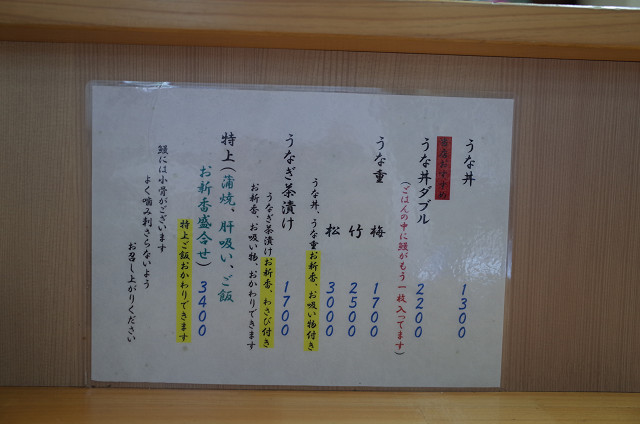 うな丼 1300
当店おすすめ
うな丼ダブル 2200
(ごはんの中に鰻がもう一枚入ってます)
うな重 梅 1700
竹 2500
松 3000
うな丼、うな重お新香、お吸い物付き
うなぎ茶漬け 1700
うなぎ茶漬けお新香、わさび付き
お新香、お吸い物、おかわりできます
特上(蒲焼、肝吸い、ご飯
お新香盛合せ) 3400
特上ご飯おかわりできます
鰻には小骨がございます
よく噛み刺さらないよう
お召し上がりください